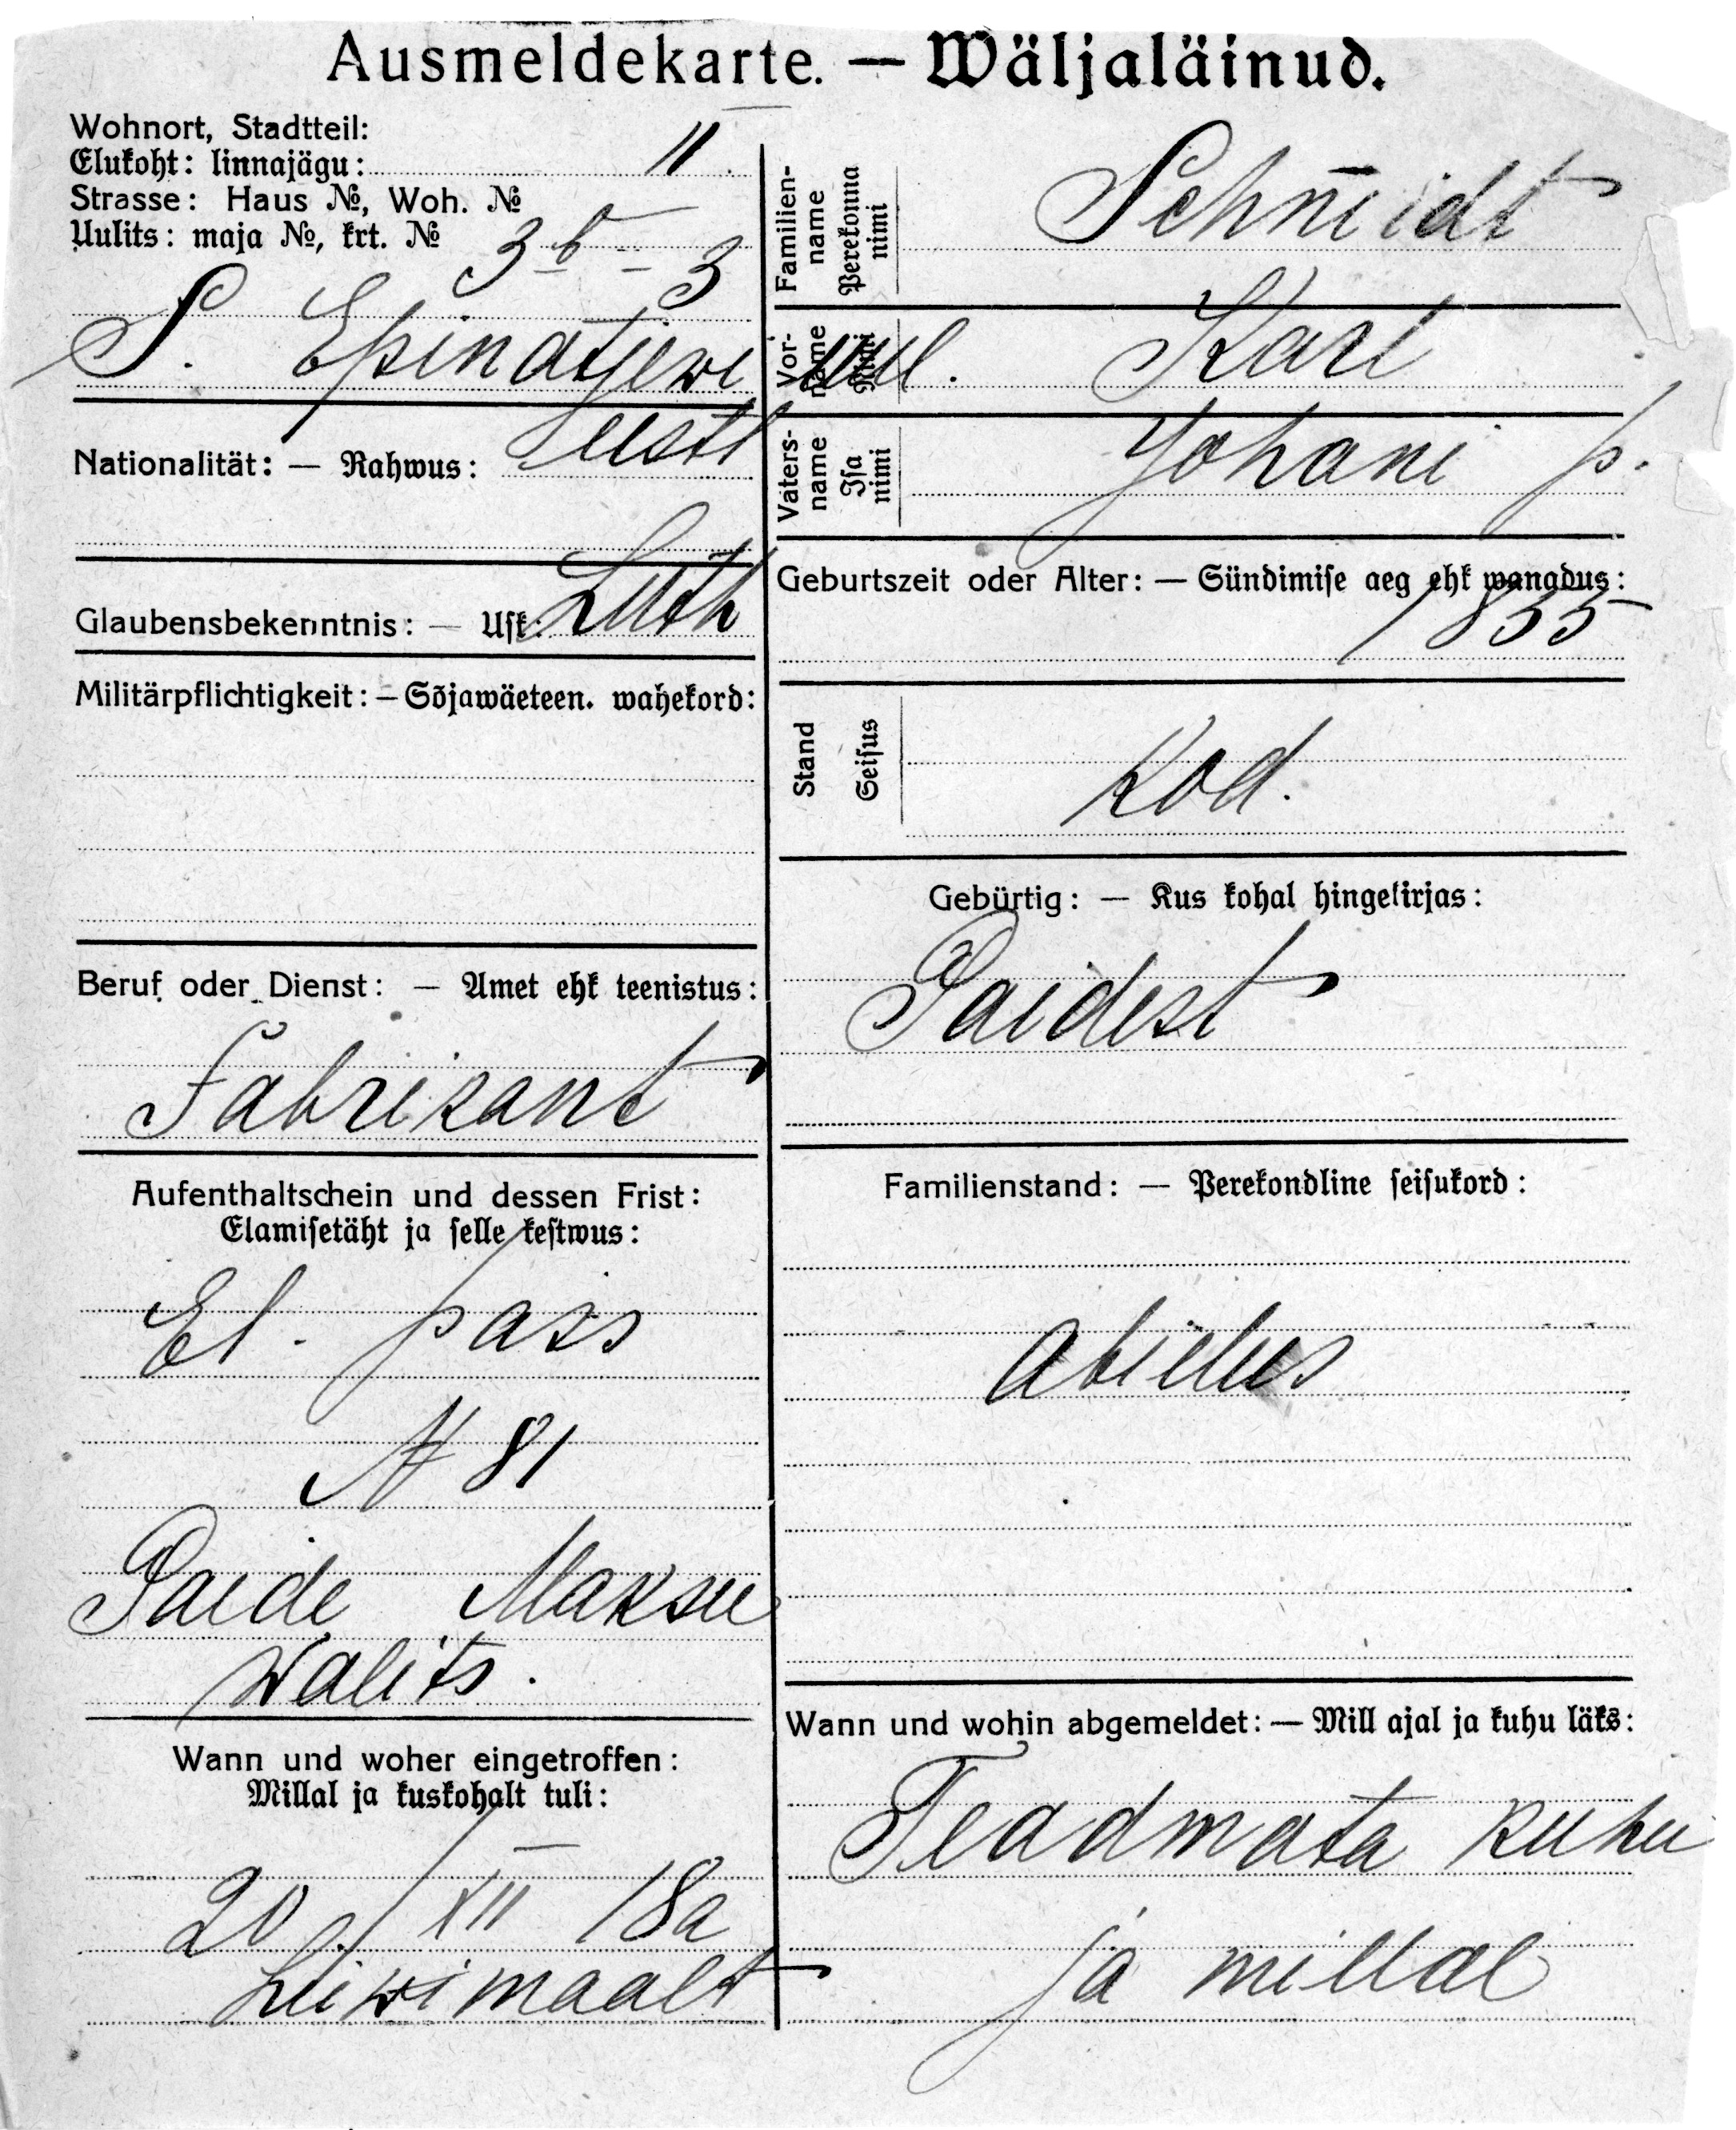 Ausmeldekarte. — Wäljaläinud.
Wohnort, Stadtteil:
Elukoht: linnajägu: II.
Strasse: Haus №, Woh. №
Uulits: maja №, krt. № 3 b - 3
S. Epinatjewi uul.
Nationalität: — Rahwus: Eesti
Glaubensbekenntnis: — Usk: Luth
Militärpflichtigkeit: — Sõjawäeteen. wahekord:
Beruf oder Dienst: — Amet ehk teenistus:
Fabrikant
Aufenthaltschein und dessen Frist:
Elamisetäht ja selle kestwus:
El. pass
№ 81
Paide Maksu
Walits.
Wann und woher eingetroffen:
Millal ja kuskohalt tuli:
20/XII 18a
Liiwimaalt
Familien-
name
Perekonna
nimi
Schmidt
Vor-
name
Nimi
Karl
Vaters-
name
Isa
nimi
Johani p.
Geburtszeit oder Alter: — Sündimise aeg ehk wanadus:
1855
Stand
Seisus
Kod.
Gebürtig: — Kus kohal hingekirjas:
Paidest
Familienstand: — Perekondline seisukord:
abielus
Wann und wohin abgemeldet: — Mill ajal ja kuhu läks:
Teadmata kuhu
ja millal